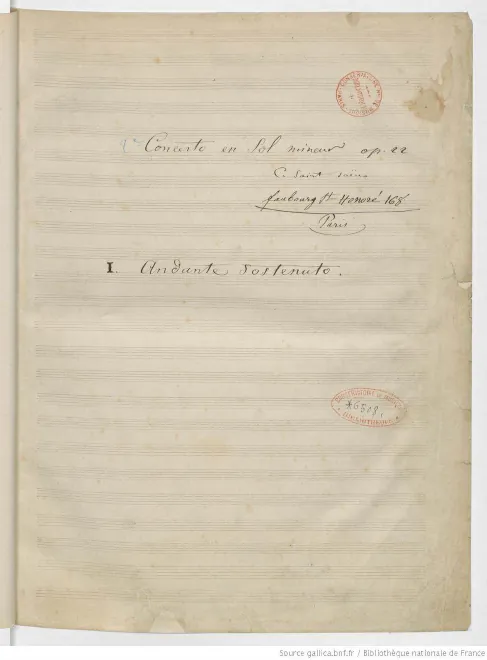 Concerto en Sol mineur op. 22
C. Saint-Saëns
faubourg St Honoré 168
Paris
I. Andante sostenuto.
BIBLIOTHÈQUE
Source gallica.bnf.fr / Bibliothèque nationale de France